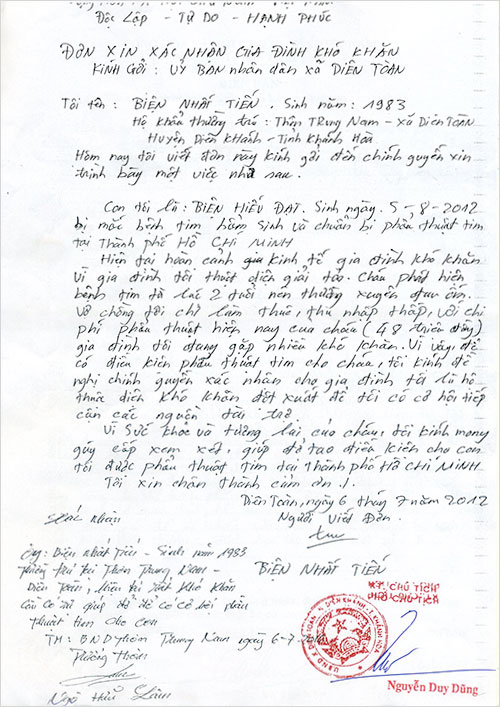 Độc Lập - Tự Do - Hạnh Phúc
ĐƠN XIN XÁC NHẬN CỦA ĐÌNH KHÓ KHĂN
KÍNH GỞI : UỶ BAN nhân dân xã DIÊN TOÀN
Tôi tên : BIỆN NHẤT TIẾN. Sinh năm : 1983
Hộ khẩu thường trú : Thôn TRung Nam - xã Diên TOÀN
Huyện Diên Khánh - Tỉnh Khánh Hoà
Hôm nay tôi viết đơn này kính gởi đến chính quyền xin
trình bày một việc như sau.
Con tôi là : BIỆN HIẾU ĐẠT. Sinh ngày. 5-8-2012
bị mắc bệnh tim bẩm sinh và chuẩn bị phẩu thuật tim
tại Thành phố HỒ CHÍ MINH
Hiện tại hoàn cảnh gia kinh tế gia đình khó khăn
Vì gia đình tôi thuộc diện giải tỏa. Cháu phát hiện
bệnh tim từ lúc 2 tuổi nên thường xuyên đau ốm.
Vợ chồng tôi chỉ làm thuê, thu nhập thấp, với chi
phí phẩu thuật hiện nay của cháu (48 triệu đồng)
gia đình tôi đang gặp nhiều khó khăn. Vì vậy, để
có điều kiện phẩu thuật tim cho cháu, tôi kính đề
nghị chính quyền xác nhận cho gia đình tôi là hộ
thuộc diện khó khăn đột xuất để tôi có cơ hội tiếp
cận các nguồn tài trợ.
Vì sức khỏe và tương lai của cháu, tôi kính mong
quý cấp xem xét, giúp đỡ tạo điều kiện cho con
tôi được phẩu thuật tim tại Thành phố HỒ CHÍ MINH
Tôi xin chân thành cảm ơn.!
Diên Toàn, ngày 6 tháng 7 năm 2012
Xác nhận
Người Viết Đơn.
Ông: Biện Nhất Tiến - Sinh năm 1983
Thường trú tại Thôn Trung Nam -
Diên Toàn, hiện tại rất khó khăn
cần có sự giúp đỡ để có cơ hội phẩu
thuật tim cho con
BIỆN NHẤT TIẾN
TM: BND Thôn Trung Nam ngày 6-7-2012
Trưởng thôn
Ngô Hữu Lâm
KT. CHỦ TỊCH
PHÓ CHỦ TỊCH
Nguyễn Duy Dũng